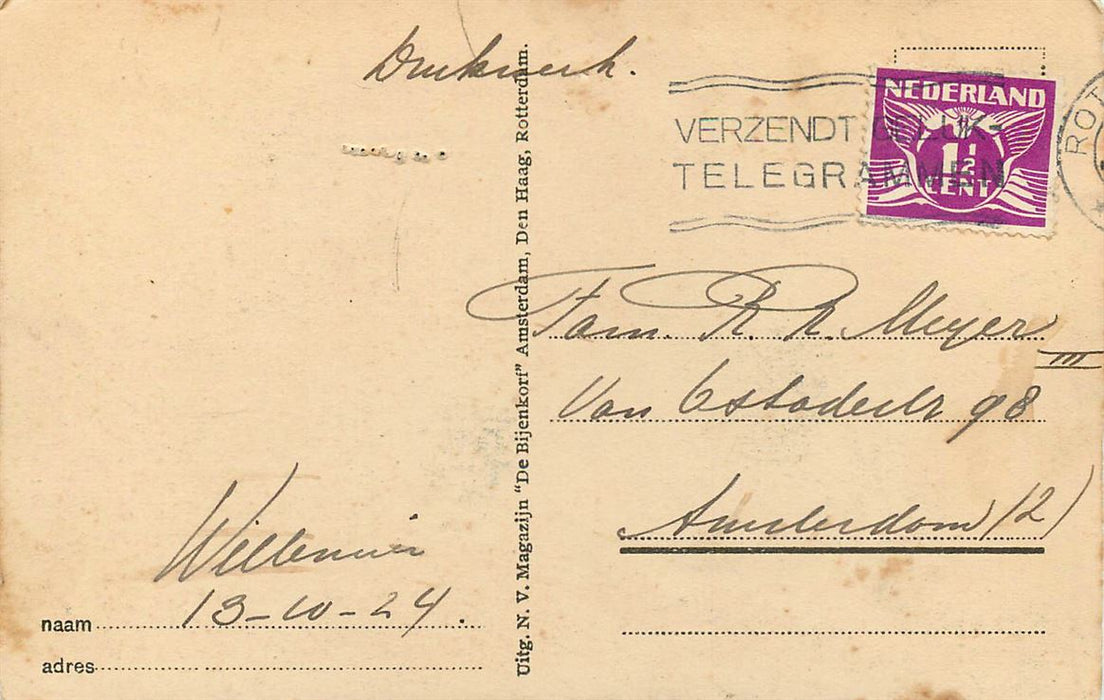 Drukwerk.
VERZENDT GELUK-
TELEGRAMMEN
NEDERLAND
1½
CENT
ROT
Fam. R. R. Meyer
Van Ostadestr 98 III
Amsterdam (Z)
Uitg. N. V. Magazijn "De Bijenkorf" Amsterdam, Den Haag, Rotterdam.
naam 13-10-24.
adres